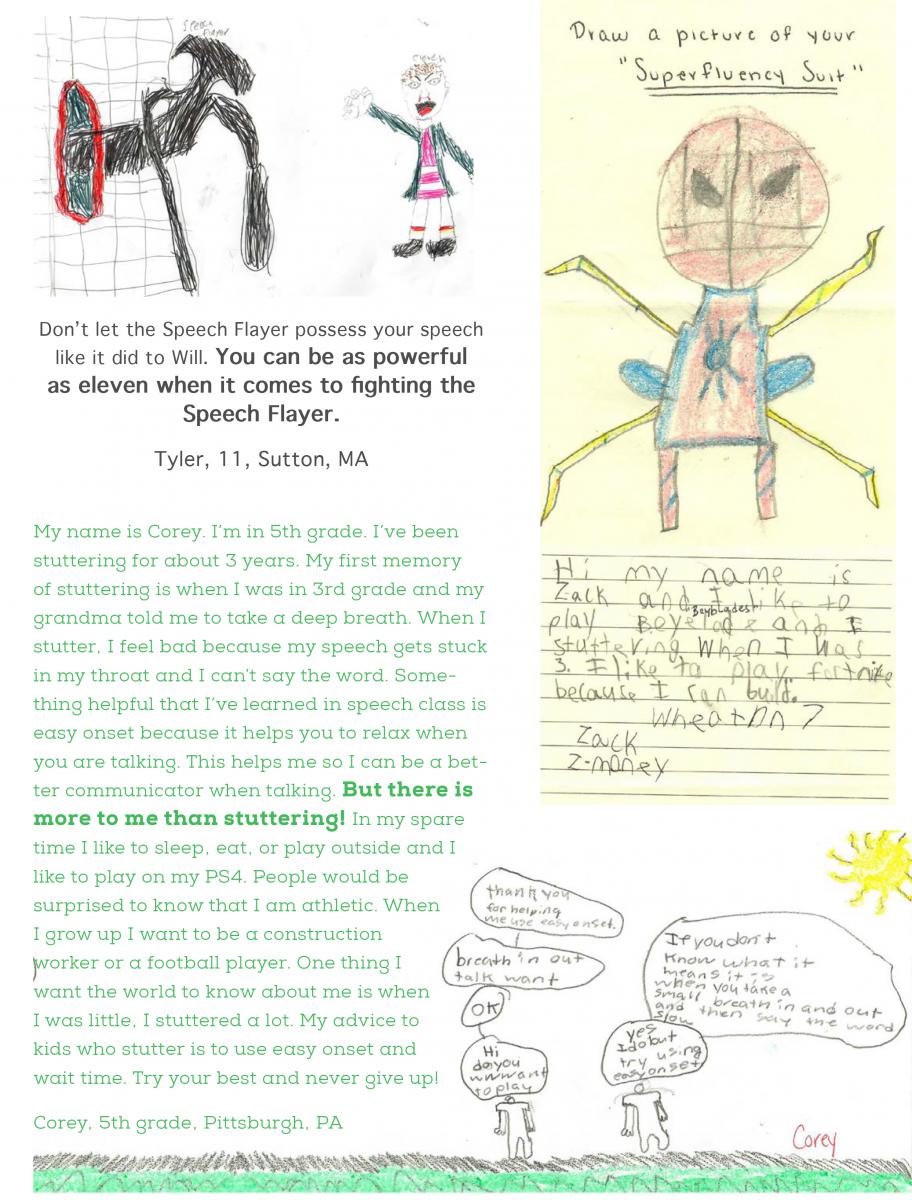 Speech
Flayer
eleven
Don't let the Speech Flayer possess your speech
like it did to Will. You can be as powerful
as eleven when it comes to fighting the
Speech Flayer.
Tyler, 11, Sutton, MA
My name is Corey. I'm in 5th grade. I've been
stuttering for about 3 years. My first memory
of stuttering is when I was in 3rd grade and my
grandma told me to take a deep breath. When I
stutter, I feel bad because my speech gets stuck
in my throat and I can't say the word. Some-
thing helpful that I've learned in speech class is
easy onset because it helps you to relax when
you are talking. This helps me so I can be a bet-
ter communicator when talking. But there is
more to me than stuttering! In my spare
time I like to sleep, eat, or play outside and I
like to play on my PS4. People would be
surprised to know that I am athletic. When
I grow up I want to be a construction
worker or a football player. One thing I
want the world to know about me is when
I was little, I stuttered a lot. My advice to
kids who stutter is to use easy onset and
wait time. Try your best and never give up!
Corey, 5th grade, Pittsburgh, PA
Draw a picture of your
"Superfluency Suit"
Hi my name is
Zack and I like to
Beyblades
play Beyblade and I
stuttering when I was
3. I like to play fortnite
because I can build.
Wheaton ?
Zack
Z-money
thank you
for helping
me use easy onset.
breath in out
talk want
OK
Hi
do you
wwwant
to play
If you don't
know what it
means it is
when you take a
small breath in and out
slow and then say the word
yes
I do but
try using
easy onset
Corey